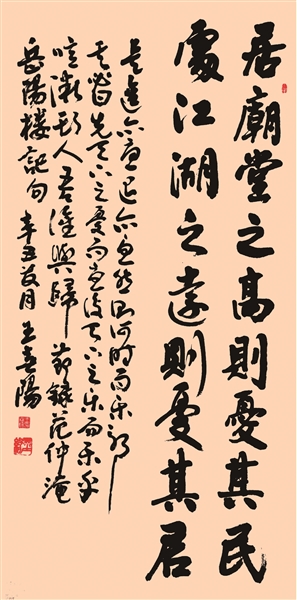 居廟堂之高則憂其民
處江湖之遠則憂其君
是進亦憂退亦憂然則何時而樂耶
其必曰先天下之憂而憂後天下之樂而樂乎
噫微斯人吾誰與歸 節錄范仲淹
岳陽樓記句 辛丑 月 王 陽